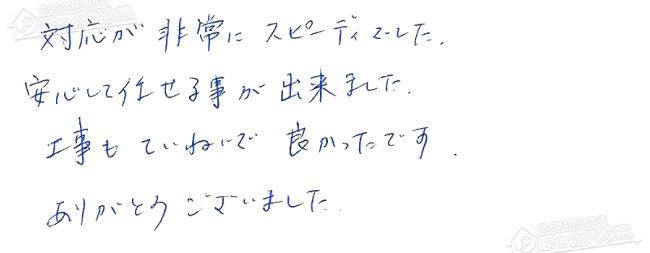 対応が非常にスピーディーでした.
安心して任せる事が出来ました.
工事もていねいで良かったです.
ありがとうございました.